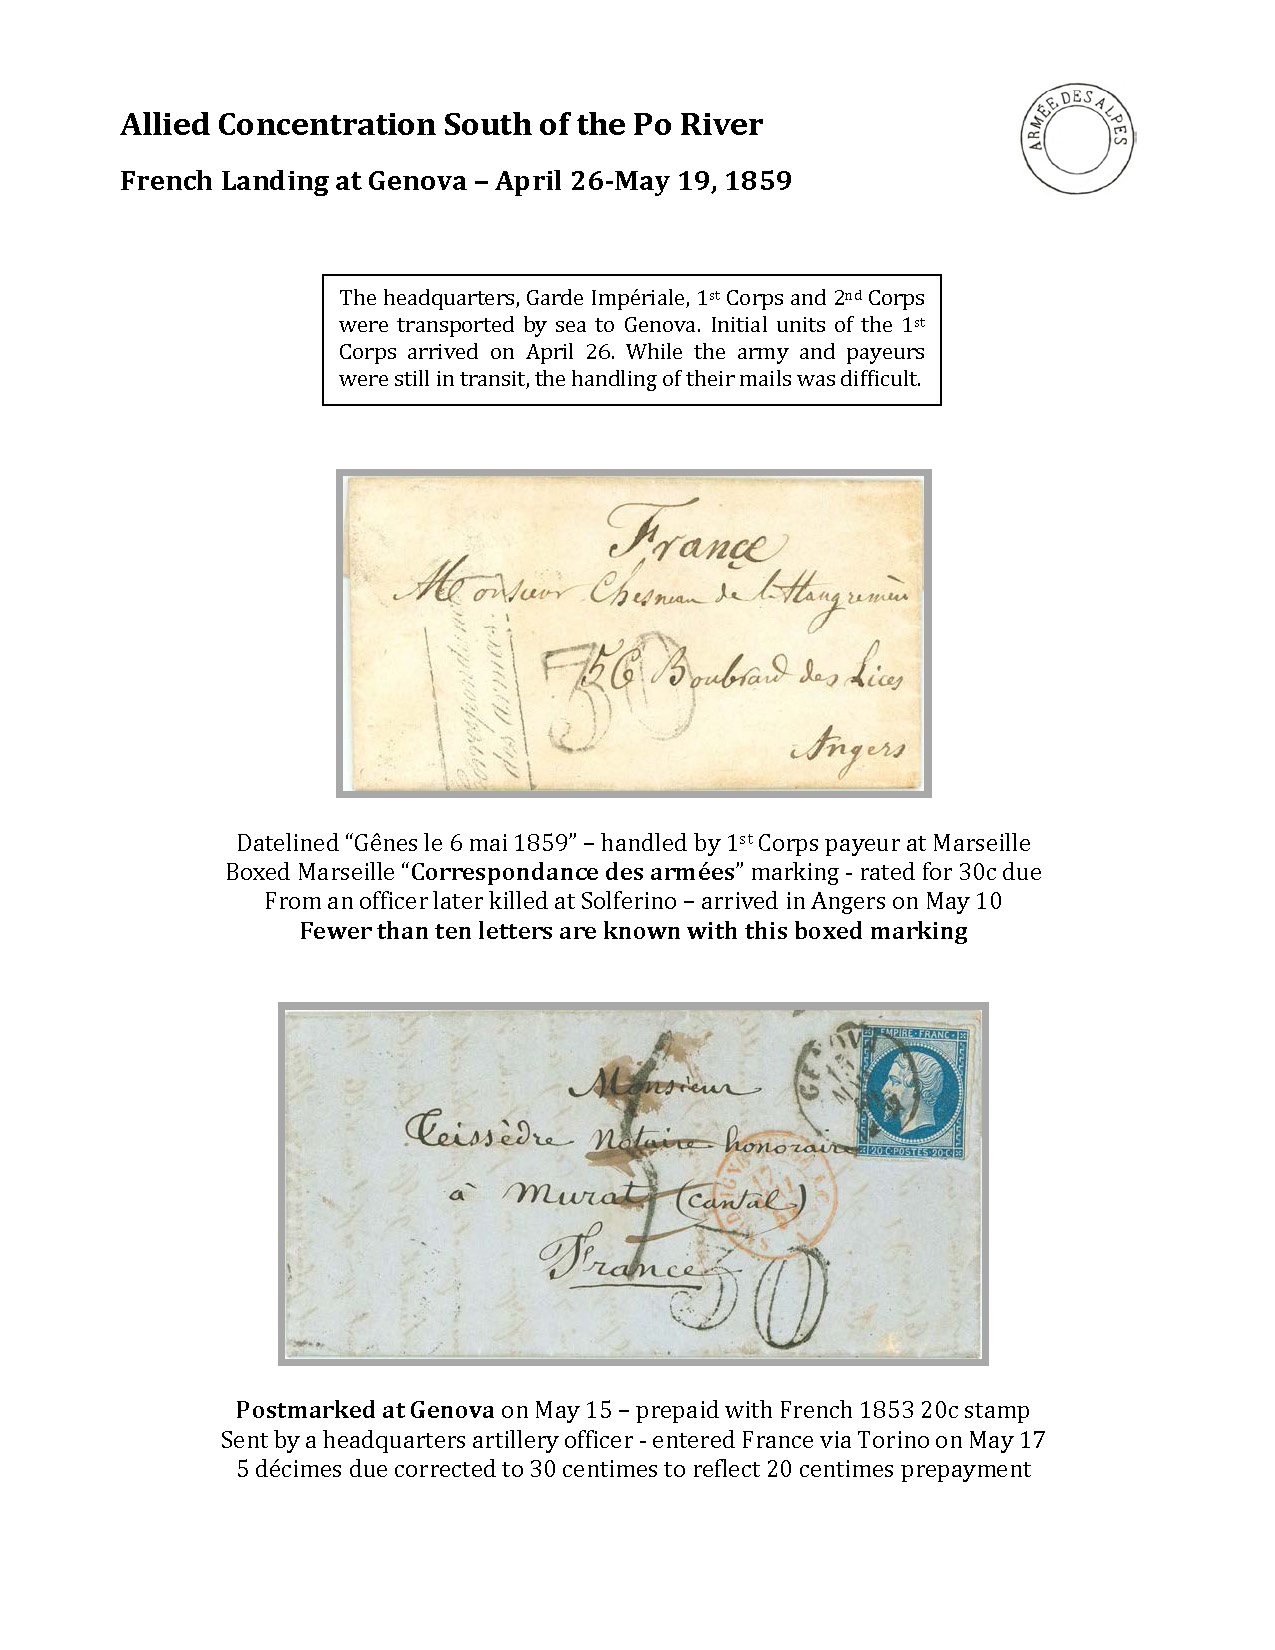 Allied Concentration South of the Po River
ARMÉE DES ALPES
French Landing at Genova – April 26-May 19, 1859
The headquarters, Garde Impériale, 1st Corps and 2nd Corps
were transported by sea to Genova. Initial units of the 1st
Corps arrived on April 26. While the army and payeurs
were still in transit, the handling of their mails was difficult.
France
Monsieur Chesneau de
56 Boulvard des Lices
30
Angers
Correspondance
des armées.
Datelined “Gênes le 6 mai 1859” – handled by 1st Corps payeur at Marseille
Boxed Marseille “Correspondance des armées” marking - rated for 30c due
From an officer later killed at Solferino – arrived in Angers on May 10
Fewer than ten letters are known with this boxed marking
GENOVA
15
EMPIRE·FRANC·
20C·POSTES·20C·
Monsieur
Teissèdre Notaire honoraire
à Murat (Cantal)
France
5
17
30
Postmarked at Genova on May 15 – prepaid with French 1853 20c stamp
Sent by a headquarters artillery officer - entered France via Torino on May 17
5 décimes due corrected to 30 centimes to reflect 20 centimes prepayment